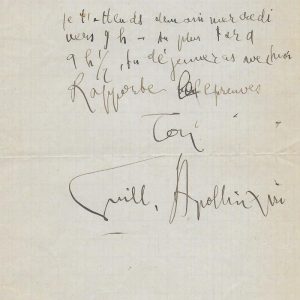 je t'attends demain mercredi
vers 9 h — au plus tard
9 h ½, tu déjeuneras avec moi
Rapporte les épreuves
Ton
Guill. Apollinaire